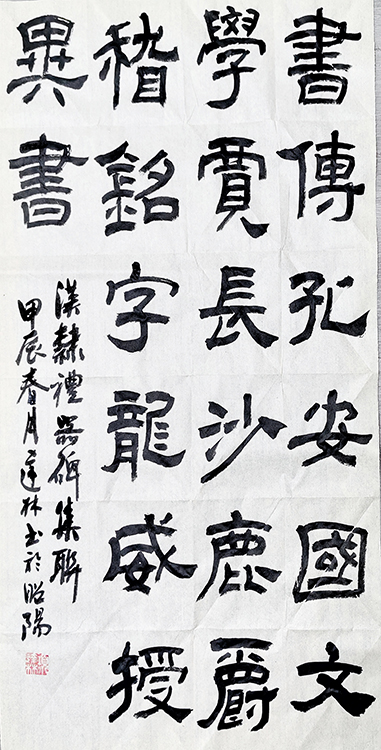 書傳孔安國文
學賈長沙鹿爵
稽銘字龍威授
異書
漢隸禮器碑集聯
甲辰春月達林书於昭陽